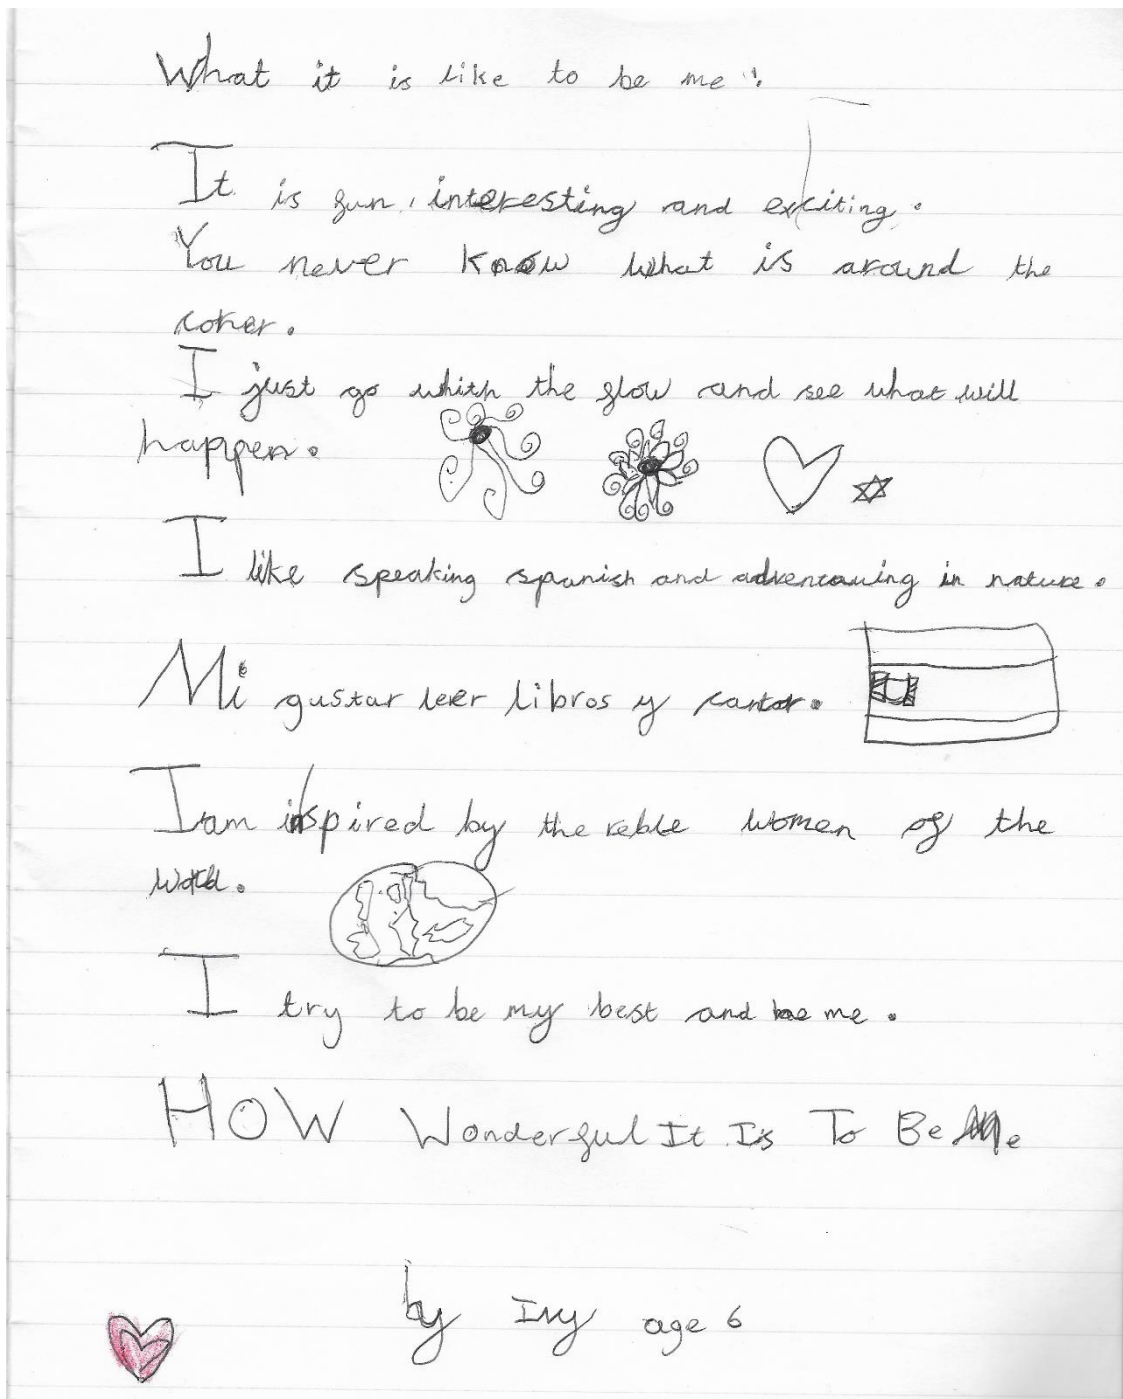 What it is like to be me!
It is fun, interesting and exciting.
You never know what is around the
coner.
I just go whith the flow and see what will
happen.
I like speaking spanish and adventauing in nature.
Mi gustar leer libros y cantar.
I am inspired by the reble women of the
world.
I try to be my best and be me.
HOW Wonderful It Is To Be Me
by Ivy age 6